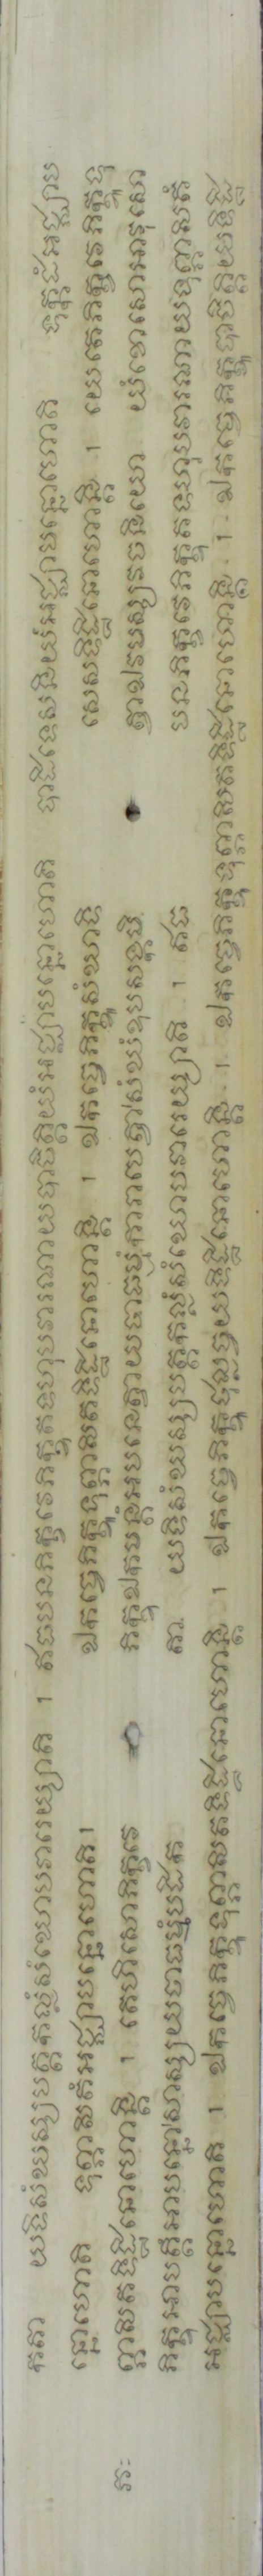 កតា យទិសំឃស្សបត្តកល្លំសំឃោបវារេយ្យាតិ ។ ឥធបនភិក្ខវេភិក្ខុតទហុបវារណាយបាចិត្តិយំអជ្ឈាបន្នោហោតិ បាដិទេសនិយំអជ្ឈាបន្នោហោតិ ទុក្កដំអជ្ឈាប
ន្នោហោតិ ទុព្ភាសិតំអជ្ឈាបន្នោហោតិ។ ឯកច្ចេភិក្ខូទុព្ភាសិតទិដ្ឋិនោហោន្តិ ។ ឯកច្ចេភិក្ខូសំឃាទិ សេសទិដ្ឋិនោហោន្តិ ។ យេតេភិក្ខវេភិក្ខូទុ
ព្ភាសិតទិដ្ឋិនោហោន្តិ ។ តេហិសោភិក្ខវេ ភិក្ខុឯកមន្តំអបនេត្វាយថាធម្មំការាបេត្វាសំឃំឧបសង្កមិ ត្វាឯវមស្សវចនិយោ យំខោសោអាវុសោ
ភិក្ខុអាបត្តឹអាបន្នោសាស្សយថាធម្មំបដិក តា យទិសំឃស្សបត្តកល្លំសំឃោបវារេយ្យាតិ ។ ឥធ បនភិក្ខវេភិក្ខុតទហុបវារណាយទុព្ភាសិតំ
អជ្ឈាបន្នោហោតិ ។ ឯកច្ចេភិក្ខូទុព្ភាសិតទិដ្ឋិនោហោន្តិ ។ ឯកច្ចេភិក្ខូថុល្លច្ចយទិដ្ឋិនោហោន្តិ ។ ឯកច្ចេភិក្ខូទុព្ភាសិតទិដ្ឋិនោហោន្តិ ។ ឯកច្ចេភិក្ខូបាចិត្តិយទិដ្ឋិ